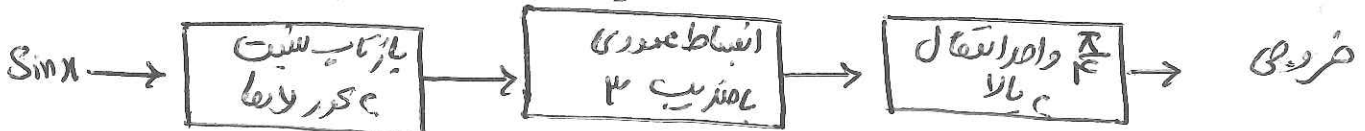 Sin x
بازتاب نسبت
به محور yها
انبساط عمودی
با ضریب ۳
π/۴ واحد انتقال
به بالا
خروجی